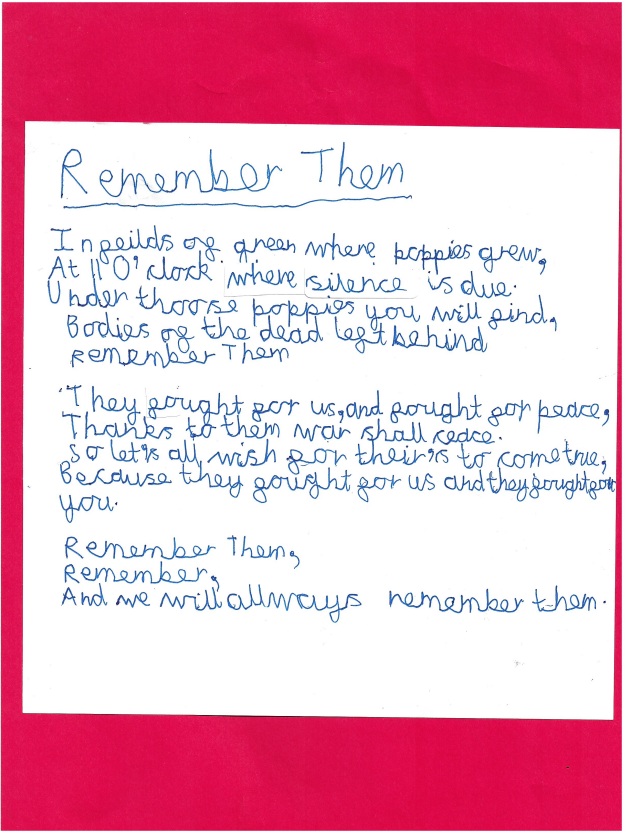 Remember Them
In feilds of green where poppies grew,
At 11 O'clock where silence is due.
Under thoose poppies you will find,
Bodies of the dead left behind
Remember Them
They fought for us, and fought for peace,
Thanks to them war shall ceace.
So let's all wish for their's to come true,
Because they fought for us and they fought for
you.
Remember Them,
Remember,
And we will allways remember them.